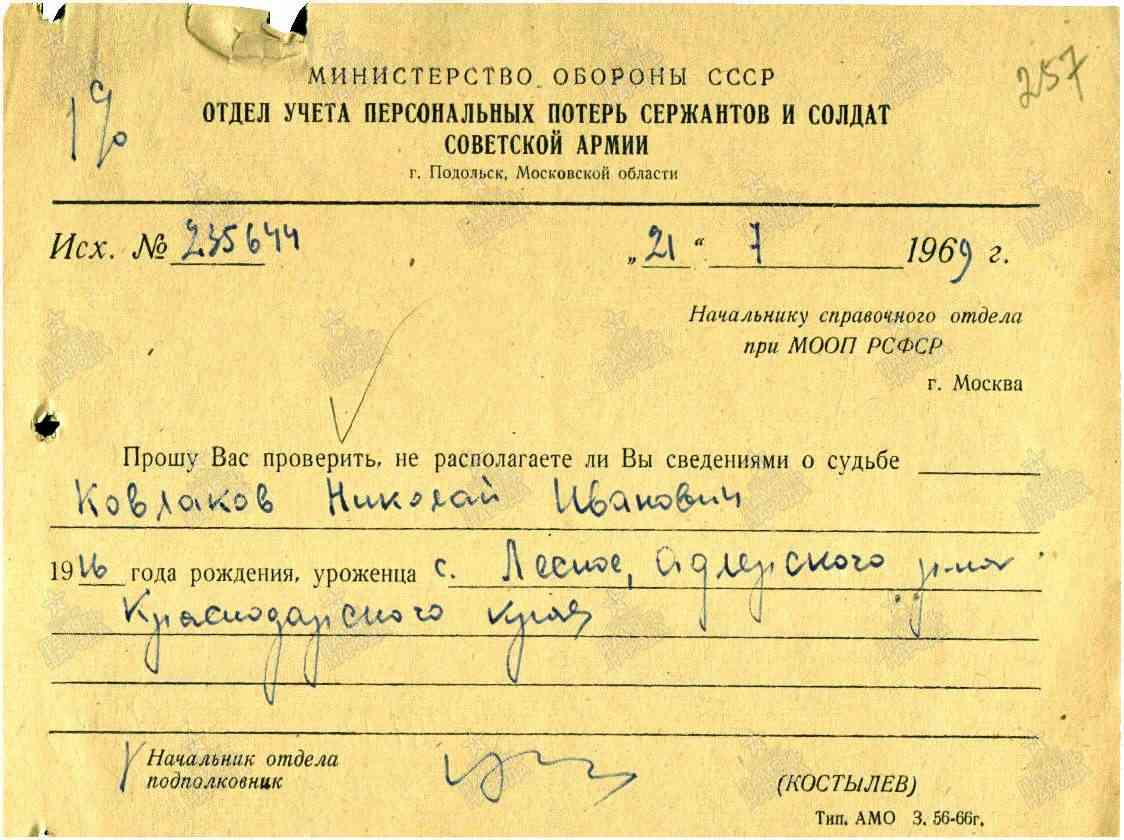 257
МИНИСТЕРСТВО ОБОРОНЫ СССР
ОТДЕЛ УЧЕТА ПЕРСОНАЛЬНЫХ ПОТЕРЬ СЕРЖАНТОВ И СОЛДАТ
СОВЕТСКОЙ АРМИИ
г. Подольск, Московской области
Исх. № 235644 „21“ 7 1969 г.
Начальнику справочного отдела
при МООП РСФСР
г. Москва
Прошу Вас проверить, не располагаете ли Вы сведениями о судьбе
Ковлаков Николай Иванович
19 года рождения, уроженца с. Лесное, Адлерского р-на
Краснодарского края
Начальник отдела
подполковник
(КОСТЫЛЕВ)
Тип. АМО З. 56-66г.